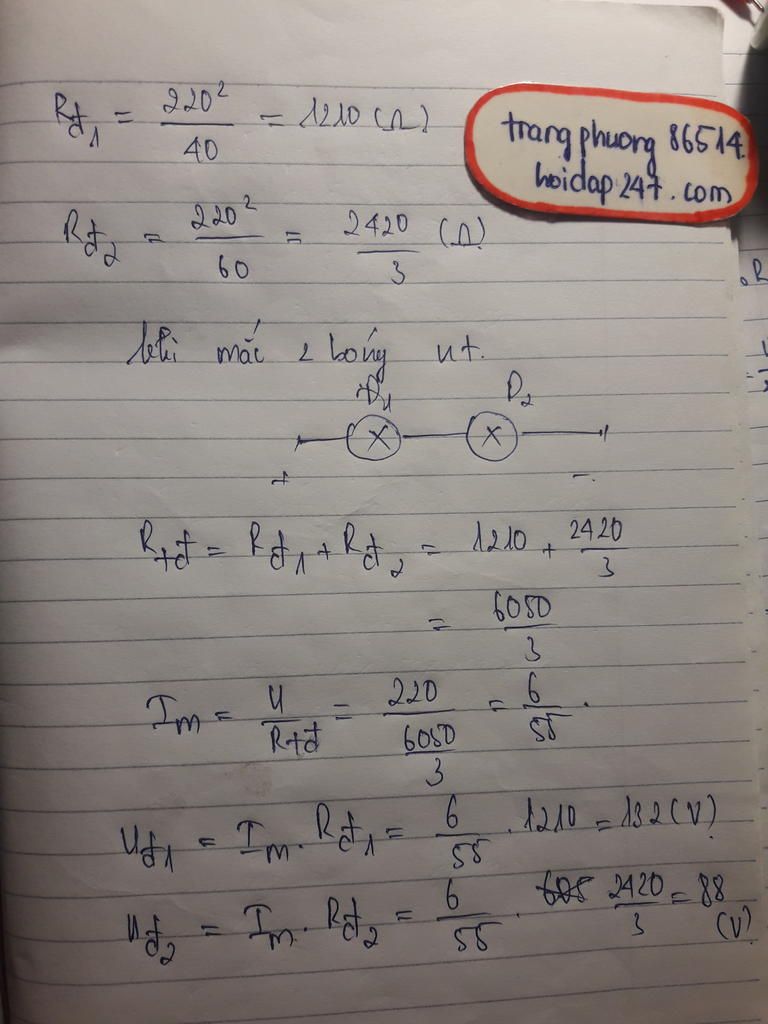 Rđ1 = 220² / 40 = 1210 (Ω)
trangphuong 86514.
hoidap247.com
Rđ2 = 220² / 60 = 2420 / 3 (Ω)
khi mắc 2 bóng nt.
Đ1 Đ2
+ -
Rtđ = Rđ1 + Rđ2 = 1210 + 2420 / 3
= 6050 / 3
Im = U / Rtđ = 220 / (6050 / 3) = 6 / 55 .
Uđ1 = Im . Rđ1 = 6 / 55 . 1210 = 132 (V)
Uđ2 = Im . Rđ2 = 6 / 55 . 2420 / 3 = 88 (V)